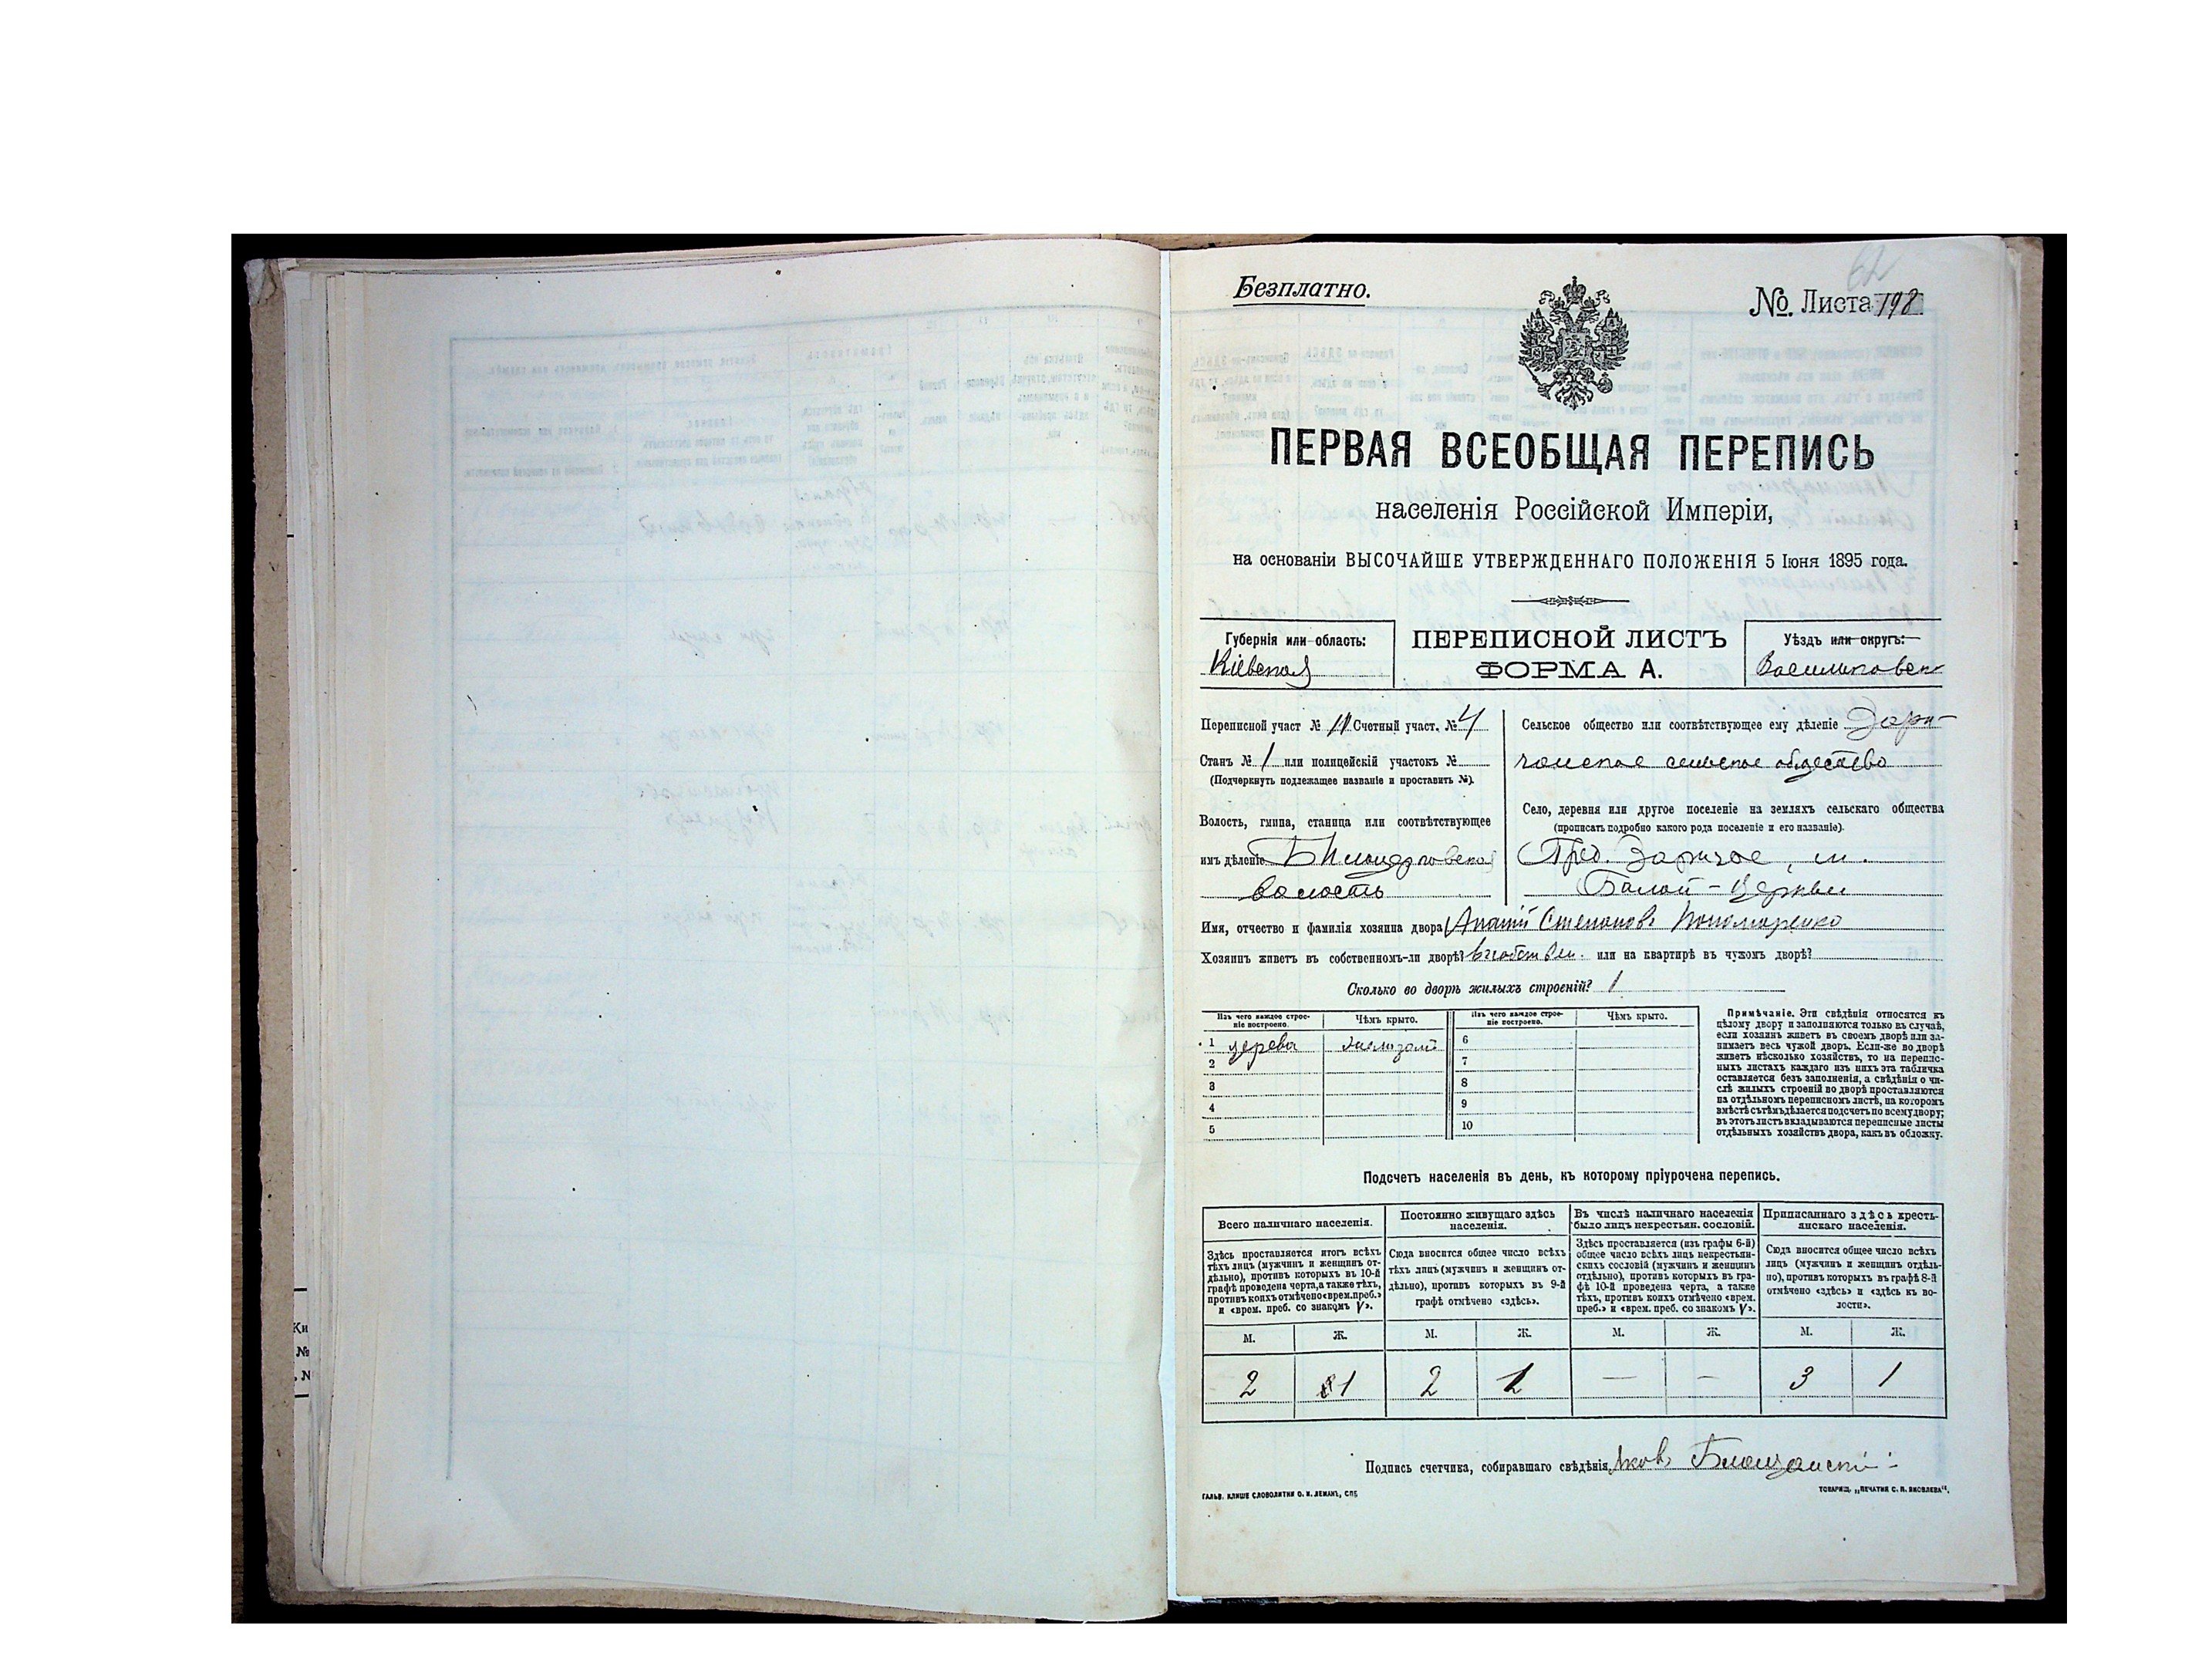 62
Безплатно.
№ Листа 198
ПЕРВАЯ ВСЕОБЩАЯ ПЕРЕПИСЬ
населенія Россійской Имперіи,
на основаніи ВЫСОЧАЙШЕ УТВЕРЖДЕННАГО ПОЛОЖЕНІЯ 5 Іюня 1895 года.
Губернія или область:
Кіевская
ПЕРЕПИСНОЙ ЛИСТЪ
ФОРМА А.
Уѣздъ или округъ:
Васильковск
Переписной участ № 11 Счетный участ. № 4
Станъ № 1 или полицейскій участокъ №
(Подчеркнуть подлежащее названіе и проставить №).
Волость, гмина, станица или соотвѣтствующее
имъ дѣленіе Бѣлоцерковская
волость
Сельское общество или соотвѣтствующее ему дѣленіе Зари-
чанское сельское общество
Село, деревня или другое поселеніе на земляхъ сельскаго общества
(прописать подробно какого рода поселеніе и его названіе).
Пред. Заричье, м.
Бѣлой-Церкви
Имя, отчество и фамилія хозяина двора Степановъ Пономаренко
Хозяинъ живетъ въ собственномъ-ли дворѣ? въ собствен. или на квартирѣ въ чужомъ дворѣ?
Сколько во дворѣ жилыхъ строеній? 1
Изъ чего каждое строе-
ніе построено.
Чѣмъ крыто.
Изъ чего каждое строе-
ніе построено.
Чѣмъ крыто.
1 дерева 6
2 7
3 8
4 9
5 10
Примѣчаніе. Эти свѣдѣнія относятся къ
цѣлому двору и заполняются только въ случаѣ,
если хозяинъ живетъ въ своемъ дворѣ или за-
нимаетъ весь чужой дворъ. Если-же во дворѣ
живетъ нѣсколько хозяйствъ, то на перепис-
ныхъ листахъ каждаго изъ нихъ эта табличка
оставляется безъ заполненія, а свѣдѣнія о чи-
слѣ жилыхъ строеній во дворѣ проставляются
на отдѣльномъ переписномъ листѣ, на которомъ
вмѣстѣ съ тѣмъ дѣлается подсчетъ по всему двору;
въ этотъ листъ вкладываются переписные листы
отдѣльныхъ хозяйствъ двора, какъ въ обложку.
Подсчетъ населенія въ день, къ которому пріурочена перепись.
Всего наличнаго населенія.
Здѣсь проставляется итогъ всѣхъ
тѣхъ лицъ (мужчинъ и женщинъ от-
дѣльно), противъ которыхъ въ 10-й
графѣ проведена черта, а также тѣхъ,
противъ коихъ отмѣчено «врем. преб.»
и «врем. преб. со знакомъ V».
Постоянно живущаго здѣсь
населенія.
Сюда вносится общее число всѣхъ
тѣхъ лицъ (мужчинъ и женщинъ от-
дѣльно), противъ которыхъ въ 9-й
графѣ отмѣчено «здѣсь».
Въ числѣ наличнаго населенія
было лицъ некрестьян. сословій.
Здѣсь проставляется (изъ графы 6-й)
общее число всѣхъ лицъ некрестьян-
скихъ сословій (мужчинъ и женщинъ
отдѣльно), противъ которыхъ въ гра-
фѣ 10-й проведена черта, а также
тѣхъ, противъ коихъ отмѣчено «врем.
преб.» и «врем. преб. со знакомъ V».
Приписаннаго здѣсь кресть-
янскаго населенія.
Сюда вносится общее число всѣхъ
лицъ (мужчинъ и женщинъ отдѣль-
но), противъ которыхъ въ графѣ 8-й
отмѣчено «здѣсь» и «здѣсь къ во-
лости».
М. Ж. М. Ж. М. Ж. М. Ж.
2 1 2 1 — — 3 1
Подпись счетчика, собиравшаго свѣдѣнія Яковъ
ГАЛЬВ. КЛИШЕ СЛОВОЛИТНИ О. И. ЛЕМАНЪ, СПБ
ТОВАРИЩ. „ПЕЧАТНЯ С. П. ЯКОВЛЕВА“.